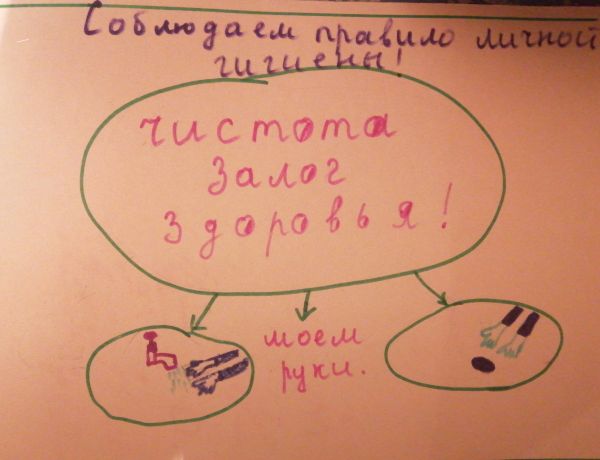 Соблюдаем правило личной
гигиены!
чистота
залог
здоровья!
моем
руки.